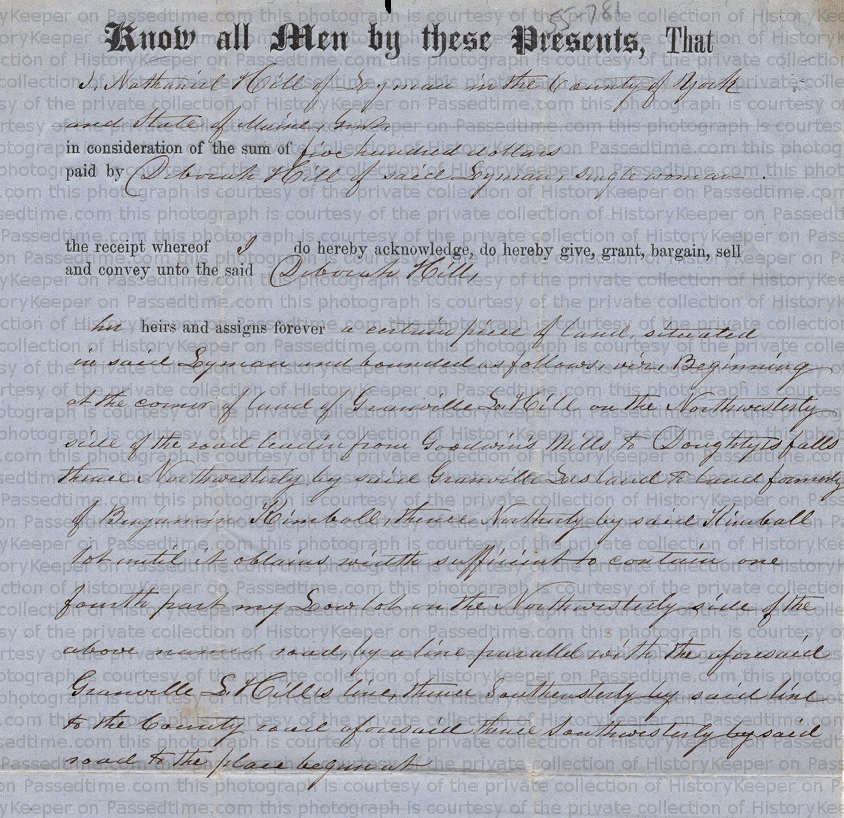 55-781
Know all Men by these Presents, That
I, Nathaniel Hill of Lyman in the County of York
and State of Maine,
in consideration of the sum of five hundred dollars
paid by Deborah Hill of said Lyman, singlewoman
the receipt whereof I do hereby acknowledge, do hereby give, grant, bargain, sell
and convey unto the said Deborah Hill,
her heirs and assigns forever a certain piece of land, situated
in said Lyman and bounded as follows, viz, Beginning
at the corner of land of Granville L. Hill on the Northwesterly
side of the road leadin from Goodwins Mills to Doughtys falls
thence Northwesterly by said Granville Ls land to land formerly
of Benjamin Kimball, thence Northerly by said Kimball
lot until it obtains width sufficient to contain one
fourth part my Low lot on the Northwesterly side of the
above named road, by a line parallel with the aforesaid
Granville L. Hills line, thence Southeasterly by said line
to the County road aforesaid thence Southwesterly by said
road to the place begun at
this photograph is courtesy of the private collection of HistoryKeeper on Passedtime.com